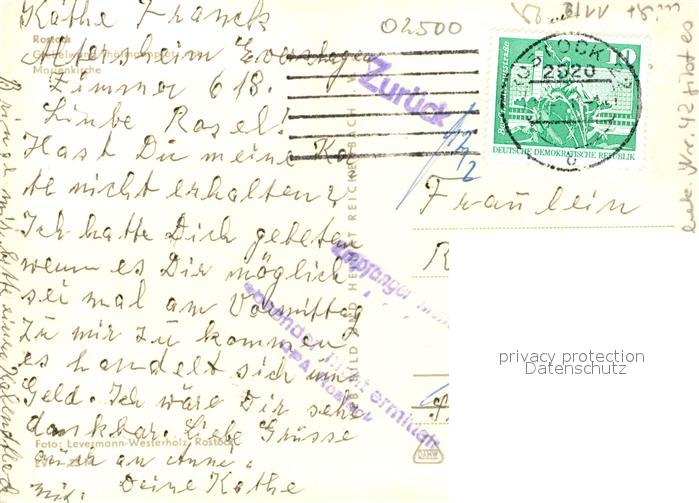 Käthe Franck
Altersheim Evershagen
Zimmer 618.
Liebe Rosel!
Hast Du meine Kar
te nicht erhalten?
Ich hatte Dich gebeten
wenn es Dir möglich
sei mal am Vormittag
zu mir zu kommen
es handelt sich um
Geld. Ich wäre Dir sehr
dankbar. Liebe Grüsse
auch an Anne,
Deine Käthe
Bringe mir bitte einen
Rostock
Marienkirche
Foto: Levermann-Westerholz, Rostock
BILD UND HEIMAT REICHENBACH
02500
Zurück
Empfänger
Absender nicht ermittelt
ROSTOCK
2520
10
DEUTSCHE DEMOKRATISCHE REPUBLIK
Fräulein
R
privacy protection
Datenschutz